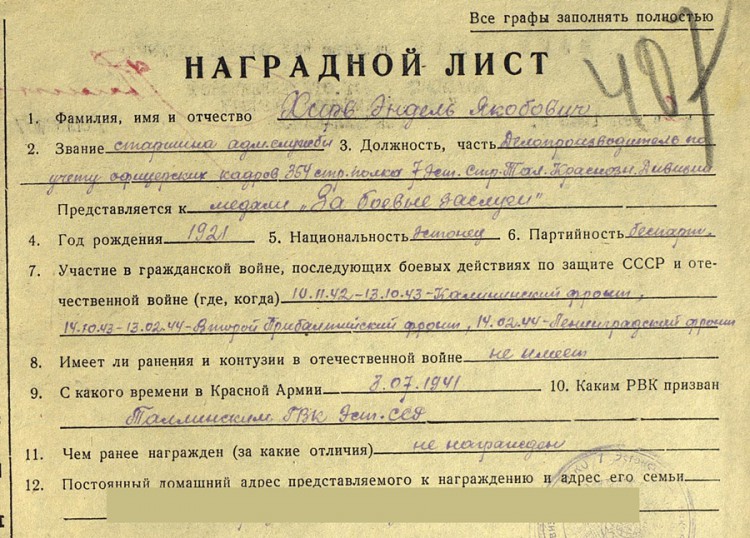 Все графы заполнять полностью
НАГРАДНОЙ ЛИСТ
1. Фамилия, имя и отчество Хирв Эндель Якобович
2. Звание старшина адм.службы 3. Должность, часть Делопроизводитель по
учету офицерских кадров, 354 стр.полка 7 Эст. Стр. Тал. Краснозн. Дивизии
Представляется к медали „За боевые заслуги"
4. Год рождения 1921 5. Национальность Эстонец 6. Партийность беспарт.
7. Участие в гражданской войне, последующих боевых действиях по защите СССР и оте-
чественной войне (где, когда) 10.11.42-13.10.43-Калининский фронт,
14.10.43-13.02.44-Второй Прибалтийский фронт, 14.02.44-Ленинградский фронт
8. Имеет ли ранения и контузии в отечественной войне не имеет
9. С какого времени в Красной Армии 3.07.1941 10. Каким РВК призван
Таллинским ГВК Эст.ССР
11. Чем ранее награжден (за какие отличия) не награжден
12. Постоянный домашний адрес представляемого к награждению и адрес его семьи